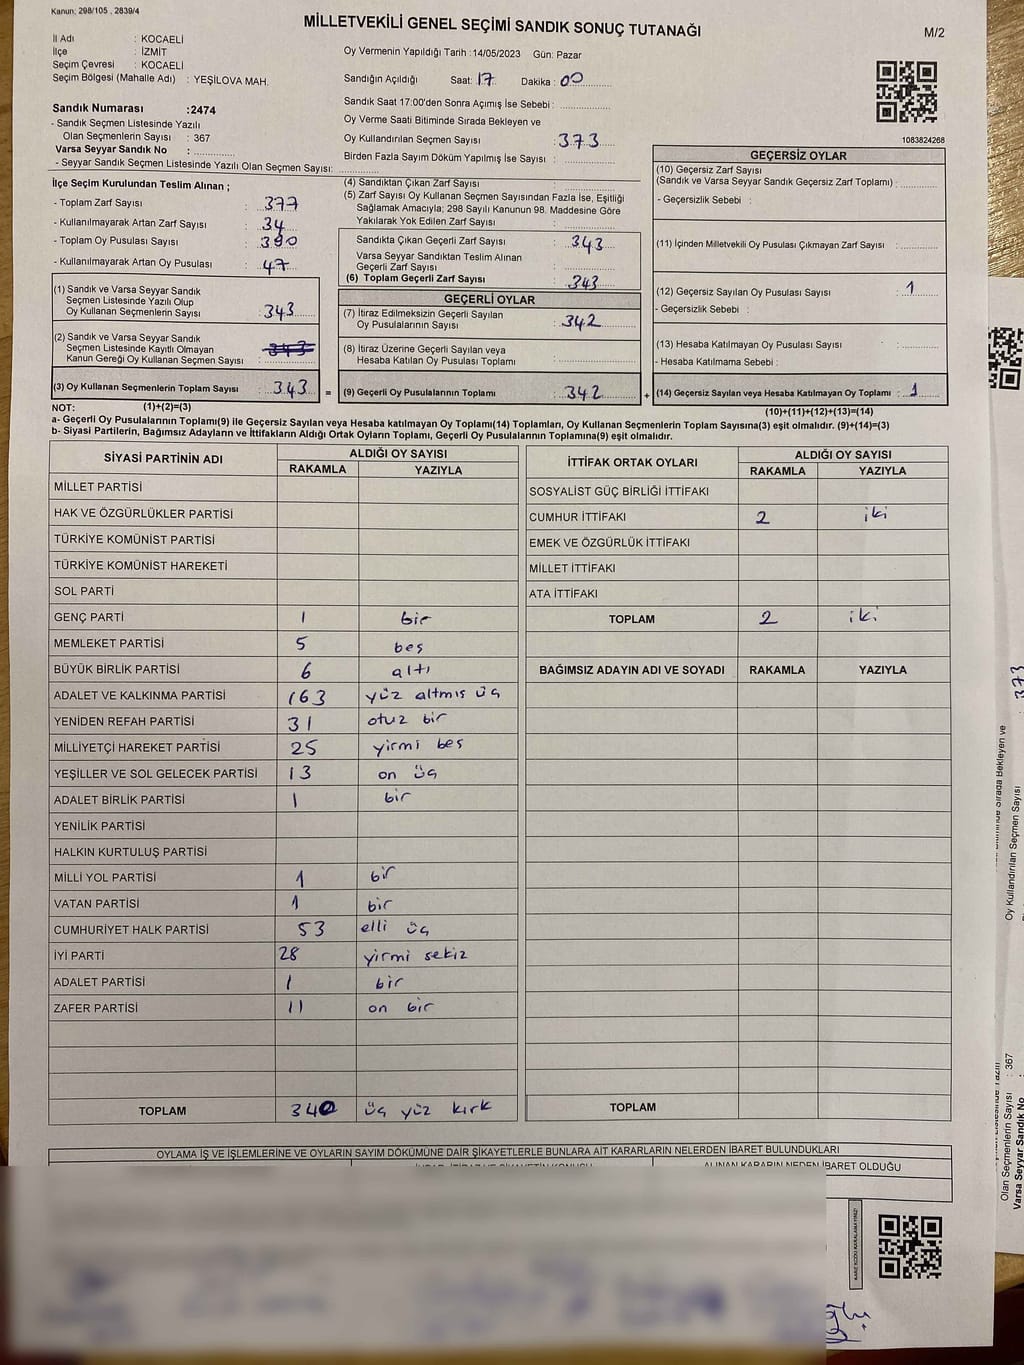 Kanun: 298/105 , 2839/4
MİLLETVEKİLİ GENEL SEÇİMİ SANDIK SONUÇ TUTANAĞI
M/2
İl Adı : KOCAELİ
İlçe : İZMİT
Seçim Çevresi : KOCAELİ
Seçim Bölgesi (Mahalle Adı) : YEŞİLOVA MAH.
Sandık Numarası :2474
- Sandık Seçmen Listesinde Yazılı
Olan Seçmenlerin Sayısı : 367
Varsa Seyyar Sandık No :
- Seyyar Sandık Seçmen Listesinde Yazılı Olan Seçmen Sayısı:
Oy Vermenin Yapıldığı Tarih :14/05/2023 Gün: Pazar
Sandığın Açıldığı Saat: 17 Dakika : 00
Sandık Saat 17:00'den Sonra Açımış İse Sebebi :
Oy Verme Saati Bitiminde Sırada Bekleyen ve
Oy Kullandırılan Seçmen Sayısı : 373
Birden Fazla Sayım Döküm Yapılmış İse Sayısı :
1083824268
İlçe Seçim Kurulundan Teslim Alınan ;
- Toplam Zarf Sayısı : 377
- Kullanılmayarak Artan Zarf Sayısı : 34
- Toplam Oy Pusulası Sayısı : 390
- Kullanılmayarak Artan Oy Pusulası : 47
(1) Sandık ve Varsa Seyyar Sandık
Seçmen Listesinde Yazılı Olup
Oy Kullanan Seçmenlerin Sayısı : 343
(2) Sandık ve Varsa Seyyar Sandık
Seçmen Listesinde Kayıtlı Olmayan
Kanun Gereği Oy Kullanan Seçmen Sayısı : 343
(3) Oy Kullanan Seçmenlerin Toplam Sayısı : 343 =
(1)+(2)=(3)
(4) Sandıktan Çıkan Zarf Sayısı :
(5) Zarf Sayısı Oy Kullanan Seçmen Sayısından Fazla İse, Eşitliği
Sağlamak Amacıyla; 298 Sayılı Kanunun 98. Maddesine Göre
Yakılarak Yok Edilen Zarf Sayısı :
Sandıkta Çıkan Geçerli Zarf Sayısı : 343
Varsa Seyyar Sandıktan Teslim Alınan
Geçerli Zarf Sayısı :
(6) Toplam Geçerli Zarf Sayısı : 343
GEÇERLİ OYLAR
(7) İtiraz Edilmeksizin Geçerli Sayılan
Oy Pusulalarının Sayısı : 342
(8) İtiraz Üzerine Geçerli Sayılan veya
Hesaba Katılan Oy Pusulası Toplamı :
(9) Geçerli Oy Pusulalarının Toplamı : 342 +
GEÇERSİZ OYLAR
(10) Geçersiz Zarf Sayısı
(Sandık ve Varsa Seyyar Sandık Geçersiz Zarf Toplamı) :
- Geçersizlik Sebebi :
(11) İçinden Milletvekili Oy Pusulası Çıkmayan Zarf Sayısı :
(12) Geçersiz Sayılan Oy Pusulası Sayısı : 1
- Geçersizlik Sebebi :
(13) Hesaba Katılmayan Oy Pusulası Sayısı :
- Hesaba Katılmama Sebebi :
(14) Geçersiz Sayılan veya Hesaba Katılmayan Oy Toplamı : 1
(10)+(11)+(12)+(13)=(14)
NOT:
a- Geçerli Oy Pusulalarının Toplamı(9) ile Geçersiz Sayılan veya Hesaba katılmayan Oy Toplamı(14) Toplamları, Oy Kullanan Seçmenlerin Toplam Sayısına(3) eşit olmalıdır. (9)+(14)=(3)
b- Siyasi Partilerin, Bağımsız Adayların ve İttifakların Aldığı Ortak Oyların Toplamı, Geçerli Oy Pusulalarının Toplamına(9) eşit olmalıdır.
SİYASİ PARTİNİN ADI ALDIĞI OY SAYISI
RAKAMLA YAZIYLA
MİLLET PARTİSİ
HAK VE ÖZGÜRLÜKLER PARTİSİ
TÜRKİYE KOMÜNİST PARTİSİ
TÜRKİYE KOMÜNİST HAREKETİ
SOL PARTİ
GENÇ PARTİ 1 bir
MEMLEKET PARTİSİ 5 beş
BÜYÜK BİRLİK PARTİSİ 6 altı
ADALET VE KALKINMA PARTİSİ 163 yüz altmış üç
YENİDEN REFAH PARTİSİ 31 otuz bir
MİLLİYETÇİ HAREKET PARTİSİ 25 yirmi beş
YEŞİLLER VE SOL GELECEK PARTİSİ 13 on üç
ADALET BİRLİK PARTİSİ 1 bir
YENİLİK PARTİSİ
HALKIN KURTULUŞ PARTİSİ
MİLLİ YOL PARTİSİ 1 bir
VATAN PARTİSİ 1 bir
CUMHURİYET HALK PARTİSİ 53 elli üç
İYİ PARTİ 28 yirmi sekiz
ADALET PARTİSİ 1 bir
ZAFER PARTİSİ 11 on bir
TOPLAM 340 üç yüz kırk
İTTİFAK ORTAK OYLARI ALDIĞI OY SAYISI
RAKAMLA YAZIYLA
SOSYALİST GÜÇ BİRLİĞİ İTTİFAKI
CUMHUR İTTİFAKI 2 iki
EMEK VE ÖZGÜRLÜK İTTİFAKI
MİLLET İTTİFAKI
ATA İTTİFAKI
TOPLAM 2 iki
BAĞIMSIZ ADAYIN ADI VE SOYADI RAKAMLA YAZIYLA
TOPLAM
OYLAMA İŞ VE İŞLEMLERİNE VE OYLARIN SAYIM DÖKÜMÜNE DAİR ŞİKAYETLERLE BUNLARA AİT KARARLARIN NELERDEN İBARET BULUNDUKLARI
ALINAN KARARIN NEDEN İBARET OLDUĞU
373
Oy Kullandırılan Seçmen Sayısı
Olan Seçmenlerin Sayısı : 367
Varsa Seyyar Sandık No